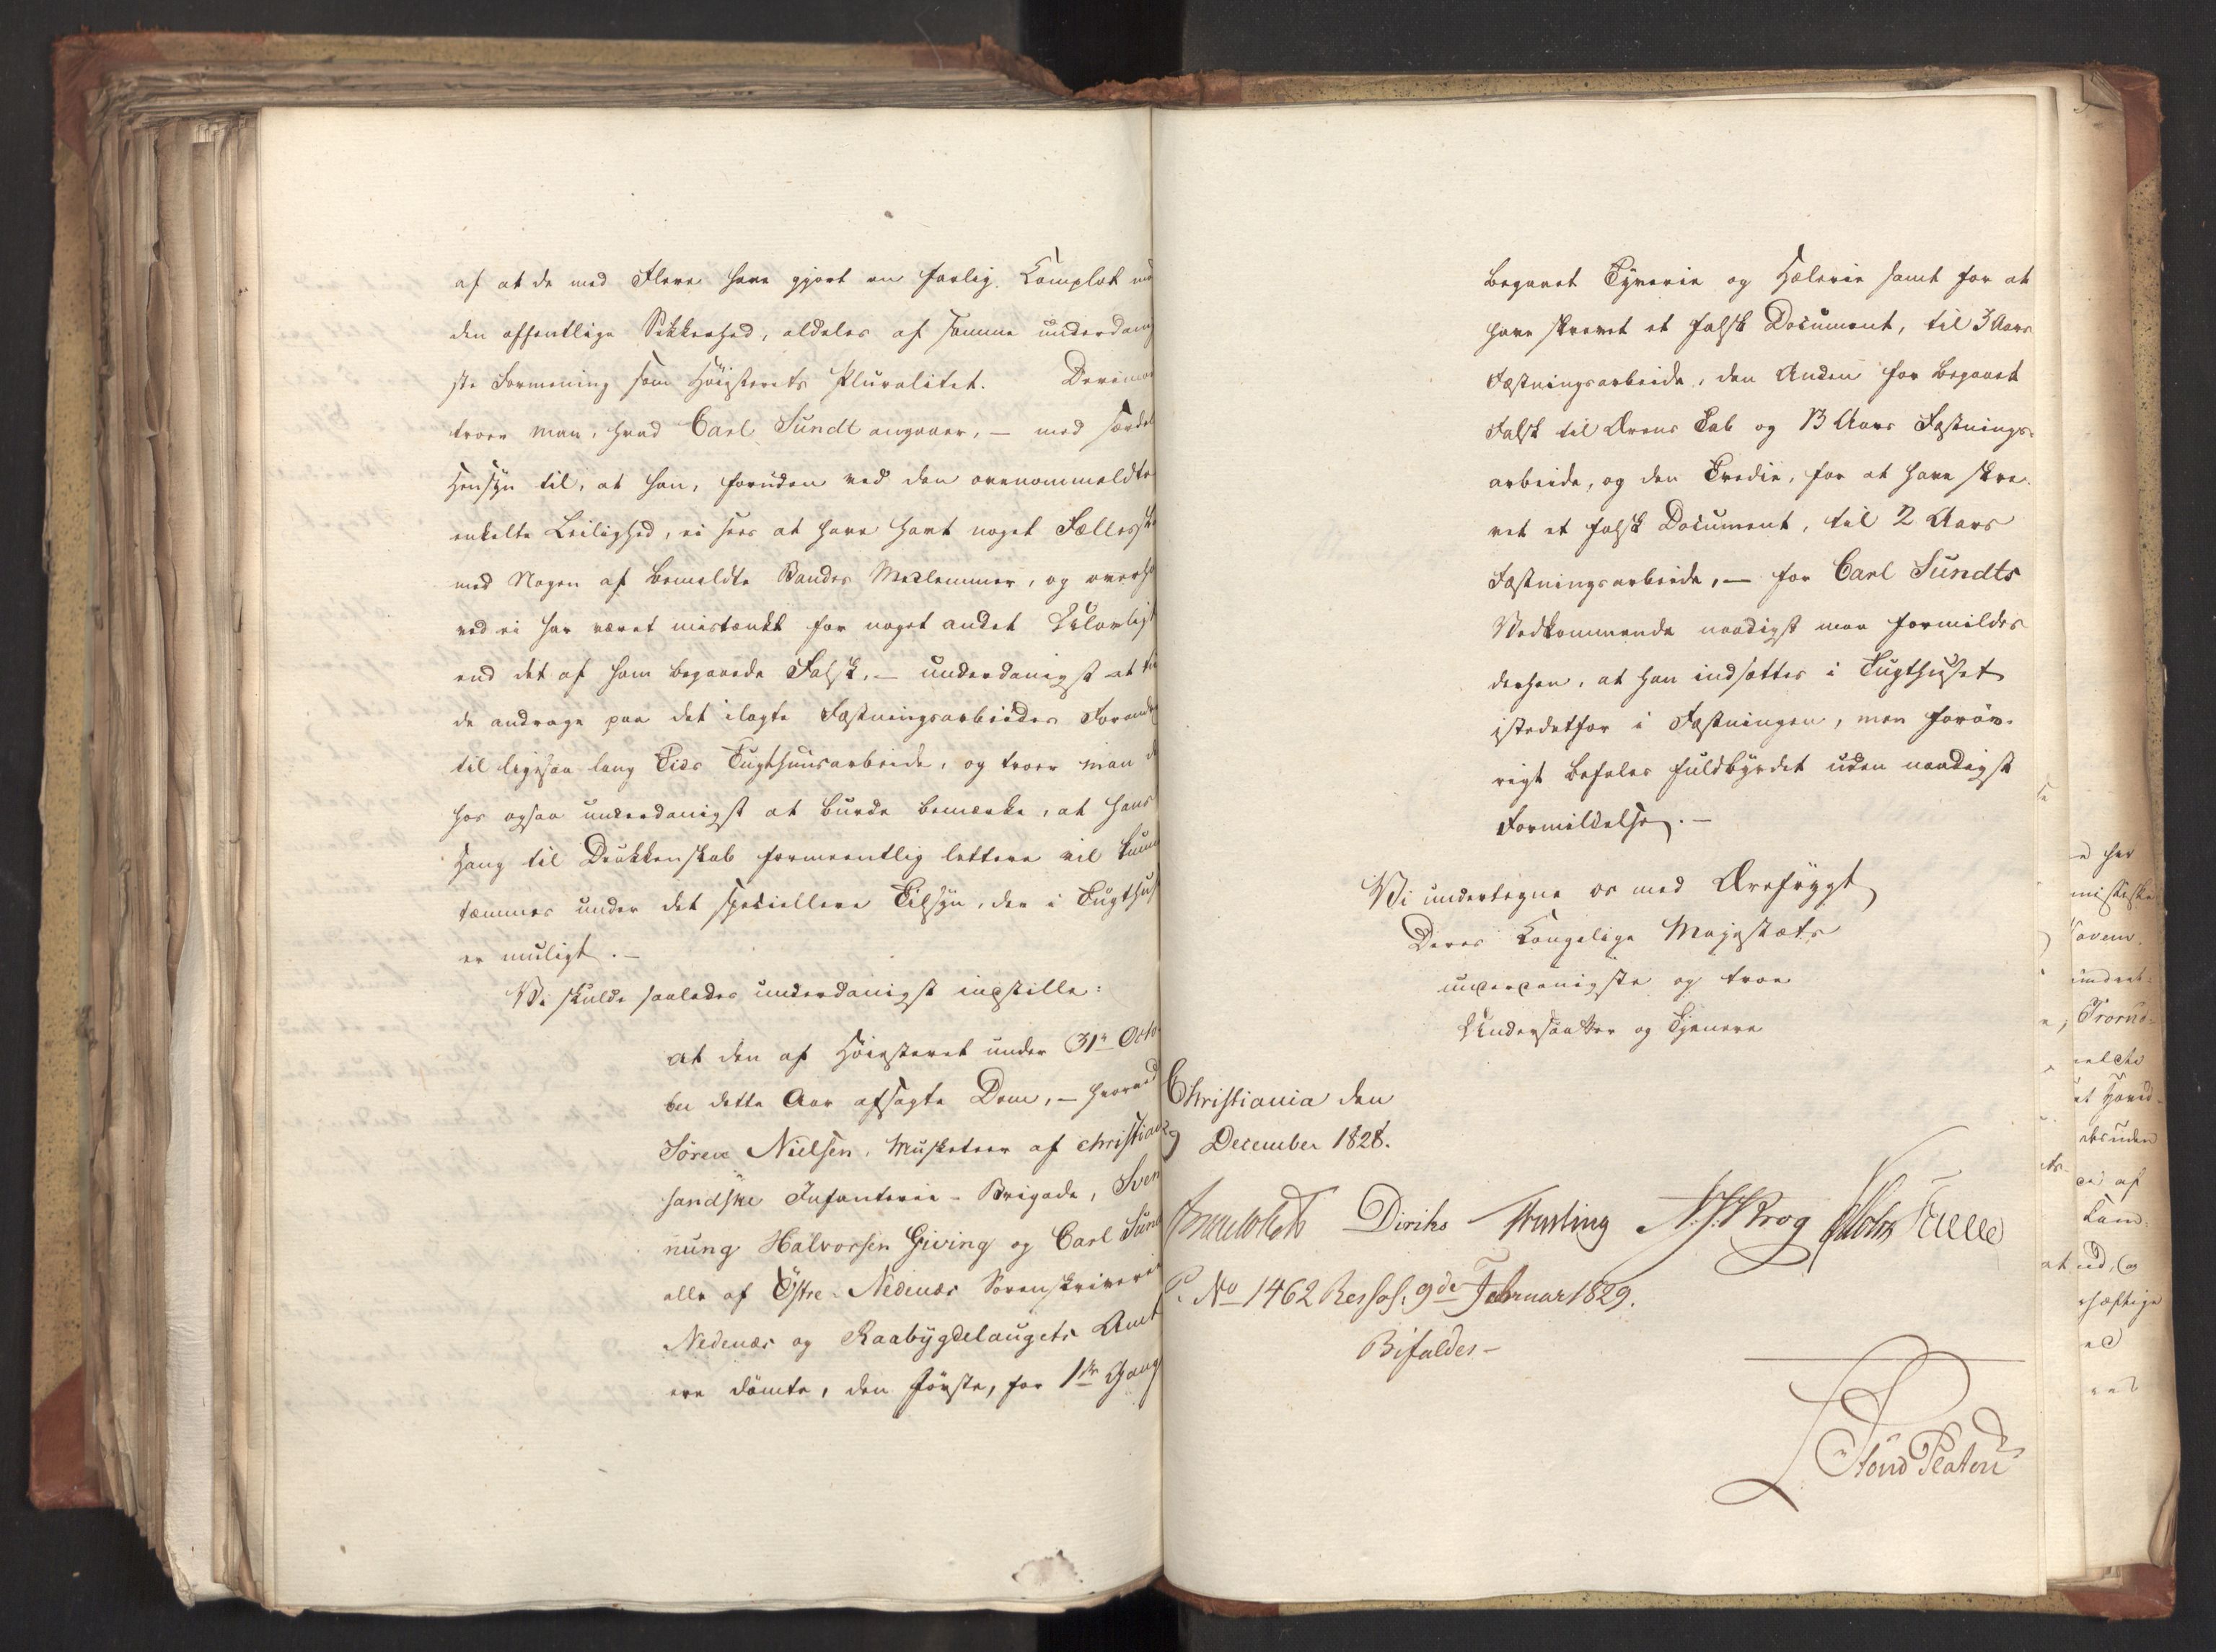 af at de med Flere have gjort en farlig Komplot mod
den offentlige Sikkerhed, aldeles af samme underdanig
ste Formening som Høiesterets Pluralitet. Derimod
troer man, hvad Carl Sundt angaaer, — med særdeles
Hensyn til, at han, foruden ved den ovenommeldte
enkelte Leilighed, ei sees at have havt noget Fællesskab
med Nogen af bemeldte Bandes Medlemmer, og overho
ved ei har været mistænkt for noget andet Ulovligt
end det af ham begaaede Falsk, — underdanigst at
de andrage paa det ilagte Fæstningsarbeides Forandr
til ligesaa lang Tids Tugthuusarbeide, og troer man
hos ogsaa underdanigst at burde bemærke, at hans
Hang til Drukkenskab formeentlig lettere vil kunne
tæmmes under det speciellere Tilsyn, der i Tugthus
er muligt. —
Vi skulde saaledes underdanigst indstille:
at den af Høiesteret under 31te Octo
ber dette Aar afsagte Dom, — hvorved
Sören Nielsen, Musketeer af Christian
sandske Infanterie-Brigade, Sven
nung Halvorsen Giving og Carl Sundt
alle af Östre Nedenæs Sorenskriverie
Nedenæs og Raabygdelaugets Amt
ere dömte, den Förste, for 1ste Gang
begaaet Tyverie og Hælerie samt for at
have skrevet et falsk Document, til 3 Aars
Fæstningsarbeide, den Anden for begaaet
Falsk til Ærens Tab og 13 Aars Fæstnings-
arbeide, og den Tredie, for at have skre-
vet et falsk Document, til 2 Aars
Fæstningsarbeide, — for Carl Sundts
Vedkommende naadigst maa formildes
derhen, at han indsættes i Tugthuset
istedetfor i Fæstningen, men forøv-
rigt befales fuldbyrdet uden naadigst
Formildelse. —
Vi undertegne os med Ærefrygt
Deres Kongelige Majestæts
underdanigste og troe
Undersaatter og Tjenere
Christiania den
9 December 1828.
Diriks N. J. Krog
P. No 1462 Res sos: 9de Februar 1829.
Bifaldes —
Platen